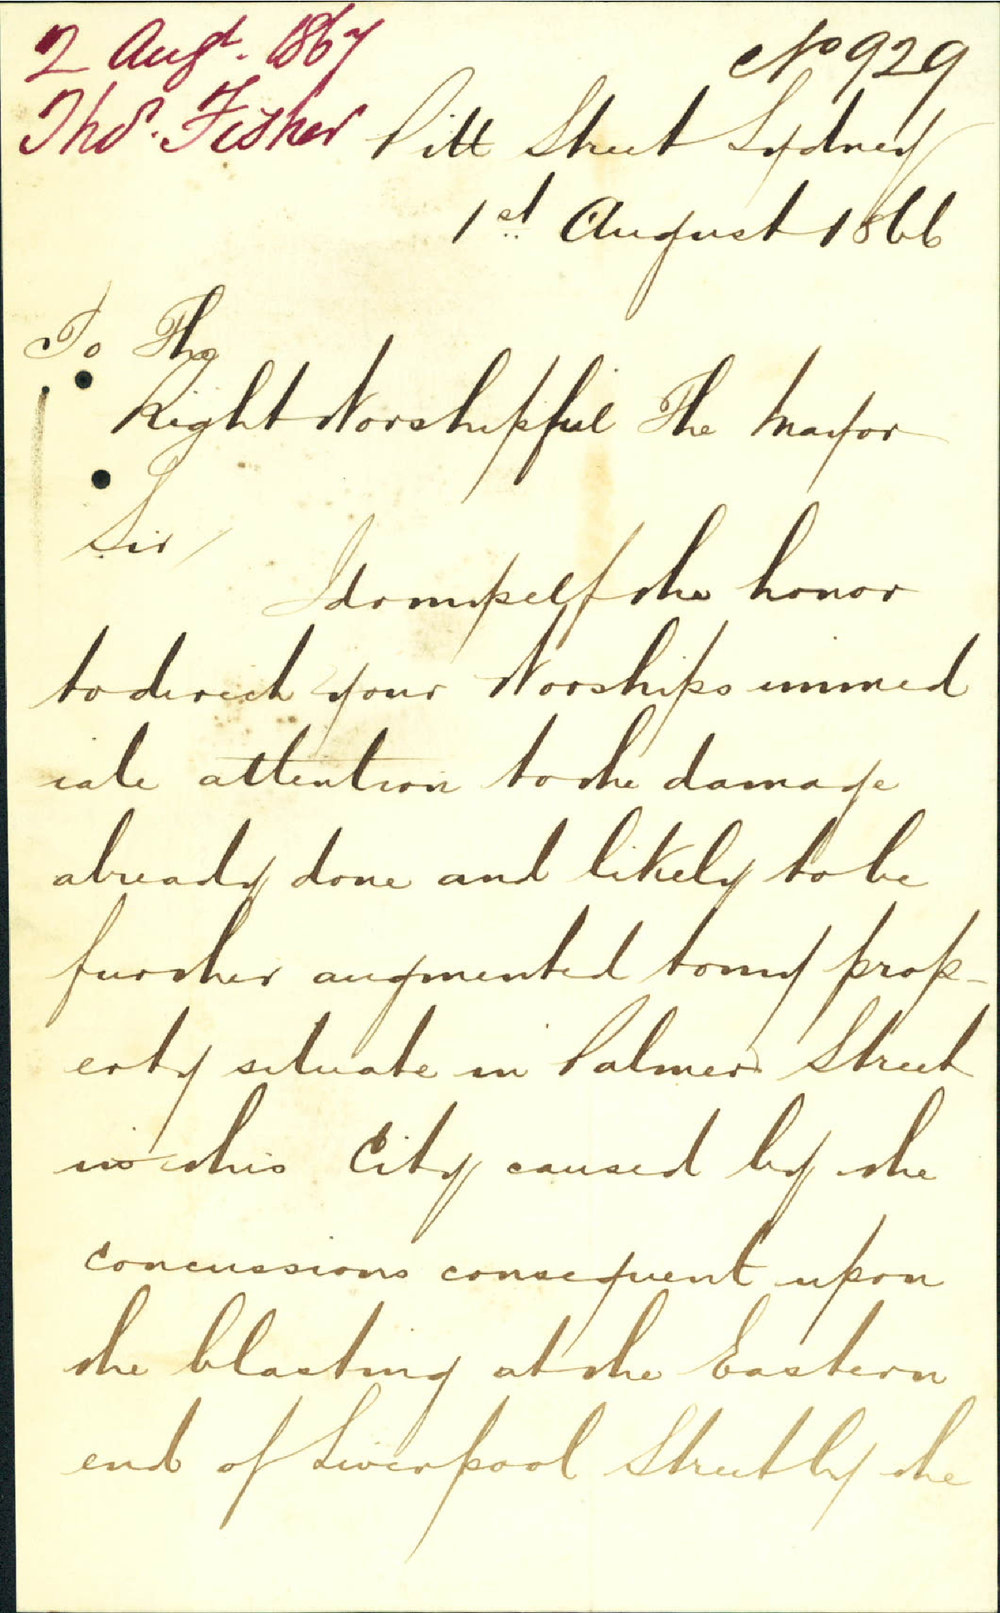 2 Augt. 1867
No 929
Thos. Fisher
Pitt Street Sydney
1st August 1866
To The
Right Worshipful The Mayor
Sir/
I do myself the honor
to direct your Worships immed
iate attention to the damage
already done and likely to be
further augmented to my prop-
erty situate in Palmer Street
in this City caused by the
concussions consequent upon
the blasting at the Eastern
end of Liverpool Street by the